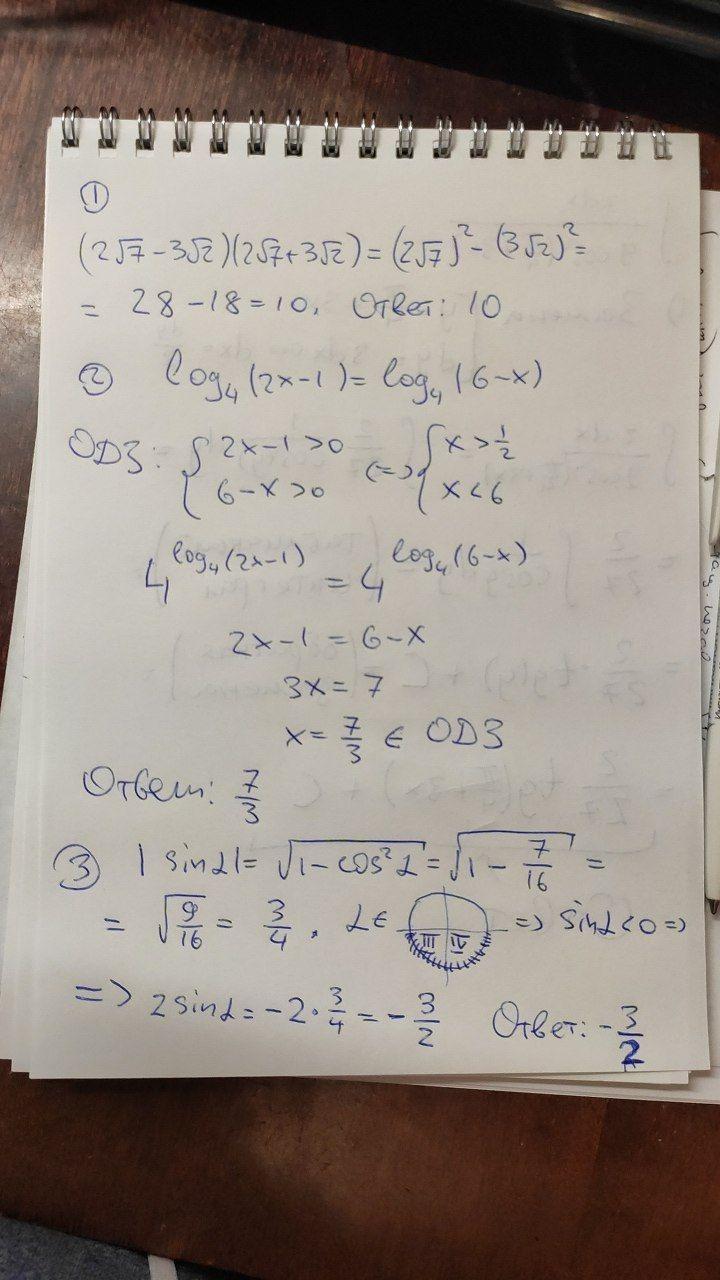 ①
(2√7-3√2)(2√7+3√2)=(2√7)²-(3√2)²=
= 28-18=10. Ответ: 10
② log₄(2x-1)=log₄(6-x)
ОДЗ: { 2x-1>0 <=> { x>1/2
6-x>0 x<6
4^log₄(2x-1) = 4^log₄(6-x)
2x-1=6-x
3x=7
x=7/3 ∈ ОДЗ
Ответ: 7/3
③ |sinα|=√(1-cos²α)=√(1-7/16)=
= √(9/16)=3/4. α∈ III IV => sinα<0=>
=> 2sinα=-2·3/4=-3/2 Ответ: -3/2